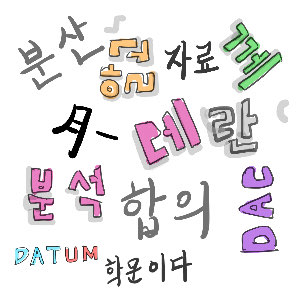 분산
자료
께
ター
데
란
분석
합의
DAC
DATUM
학문이다